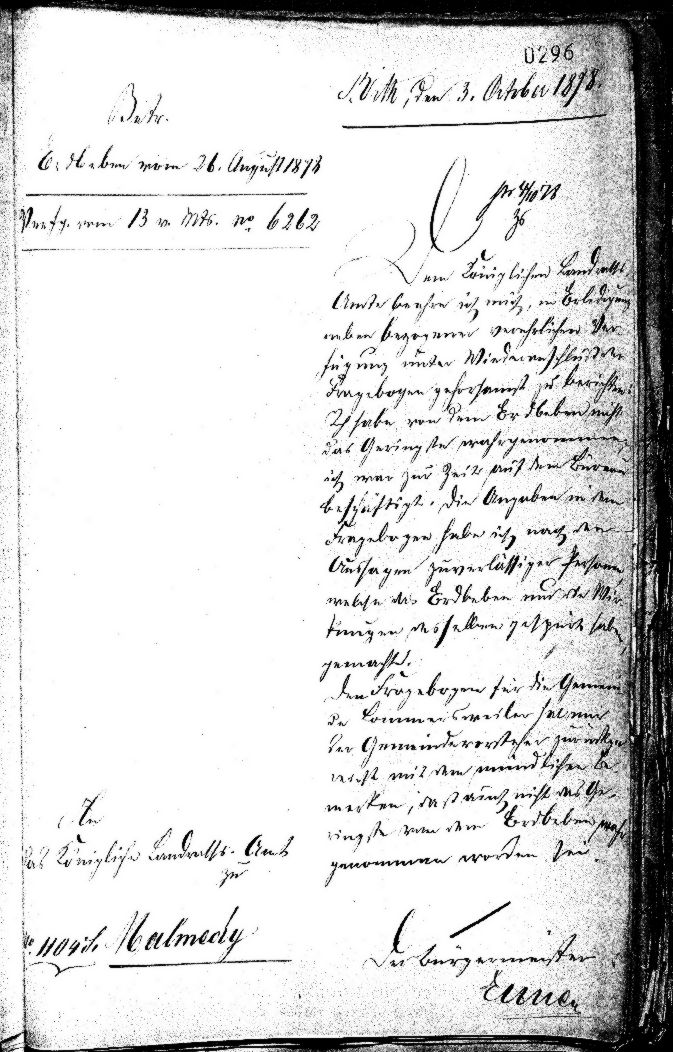 0296
St. Vith, den 3. October 1878.
Betr.
Erdbeben vom 26. August 1878
Verfg. vom 13 v. Mts. No. 6262
Dem Königlichen Landraths-
Amte beehre ich mich, in Erledigung
neben bezogener verehrlichen Ver-
fügung unter Wiederanschluß der
Fragebogen gehorsamst zu berichten:
Ich habe von dem Erdbeben nicht
das Geringste wahrgenommen,
ich war zur Zeit auf dem Büreau
beschäftigt. Die Angaben in dem
Fragebogen habe ich nach den
Aussagen zuverlässiger Personen,
welche das Erdbeben und die Wir-
kungen desselben gespürt haben,
gemacht.
Den Fragebogen für die Gemein-
de Lommersweiler hat mir
der Gemeindevorsteher zurückge-
reicht mit dem mündlichen Be-
merken, daß auch nicht das Ge-
ringste von dem Erdbeben wahr-
genommen worden sei.
An
das Königliche Landraths-Amt
zu
Malmedy
No. 1104
Der Bürgermeister